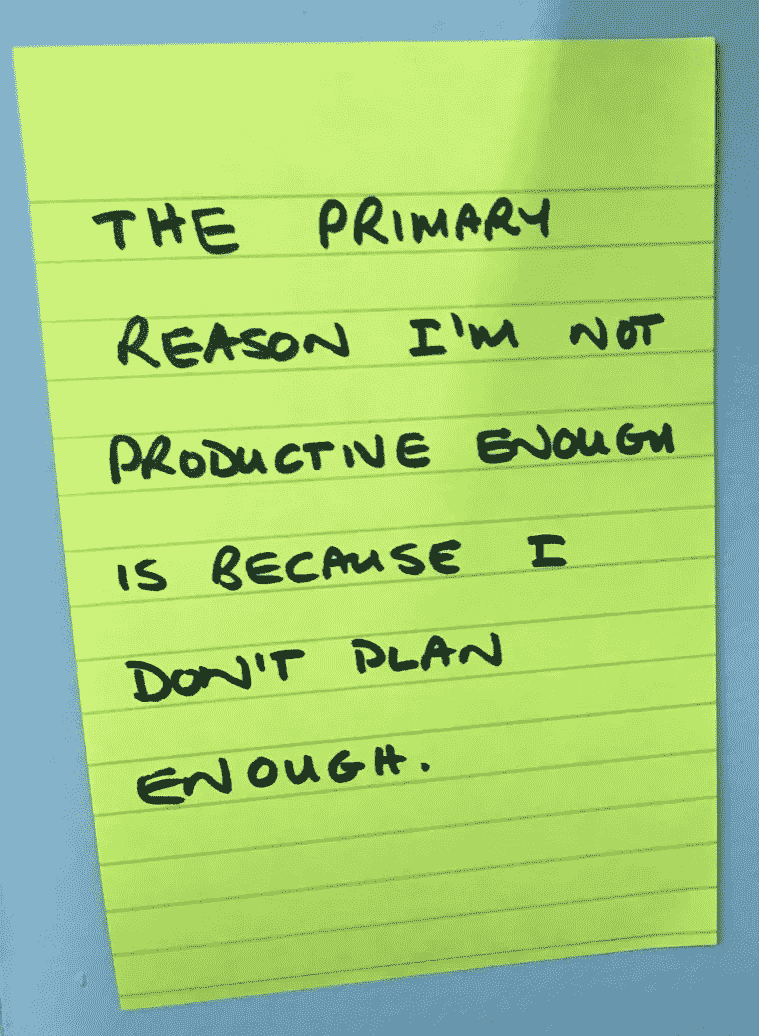 THE PRIMARY
REASON I'M NOT
PRODUCTIVE ENOUGH
IS BECAUSE I
DON'T PLAN
ENOUGH.